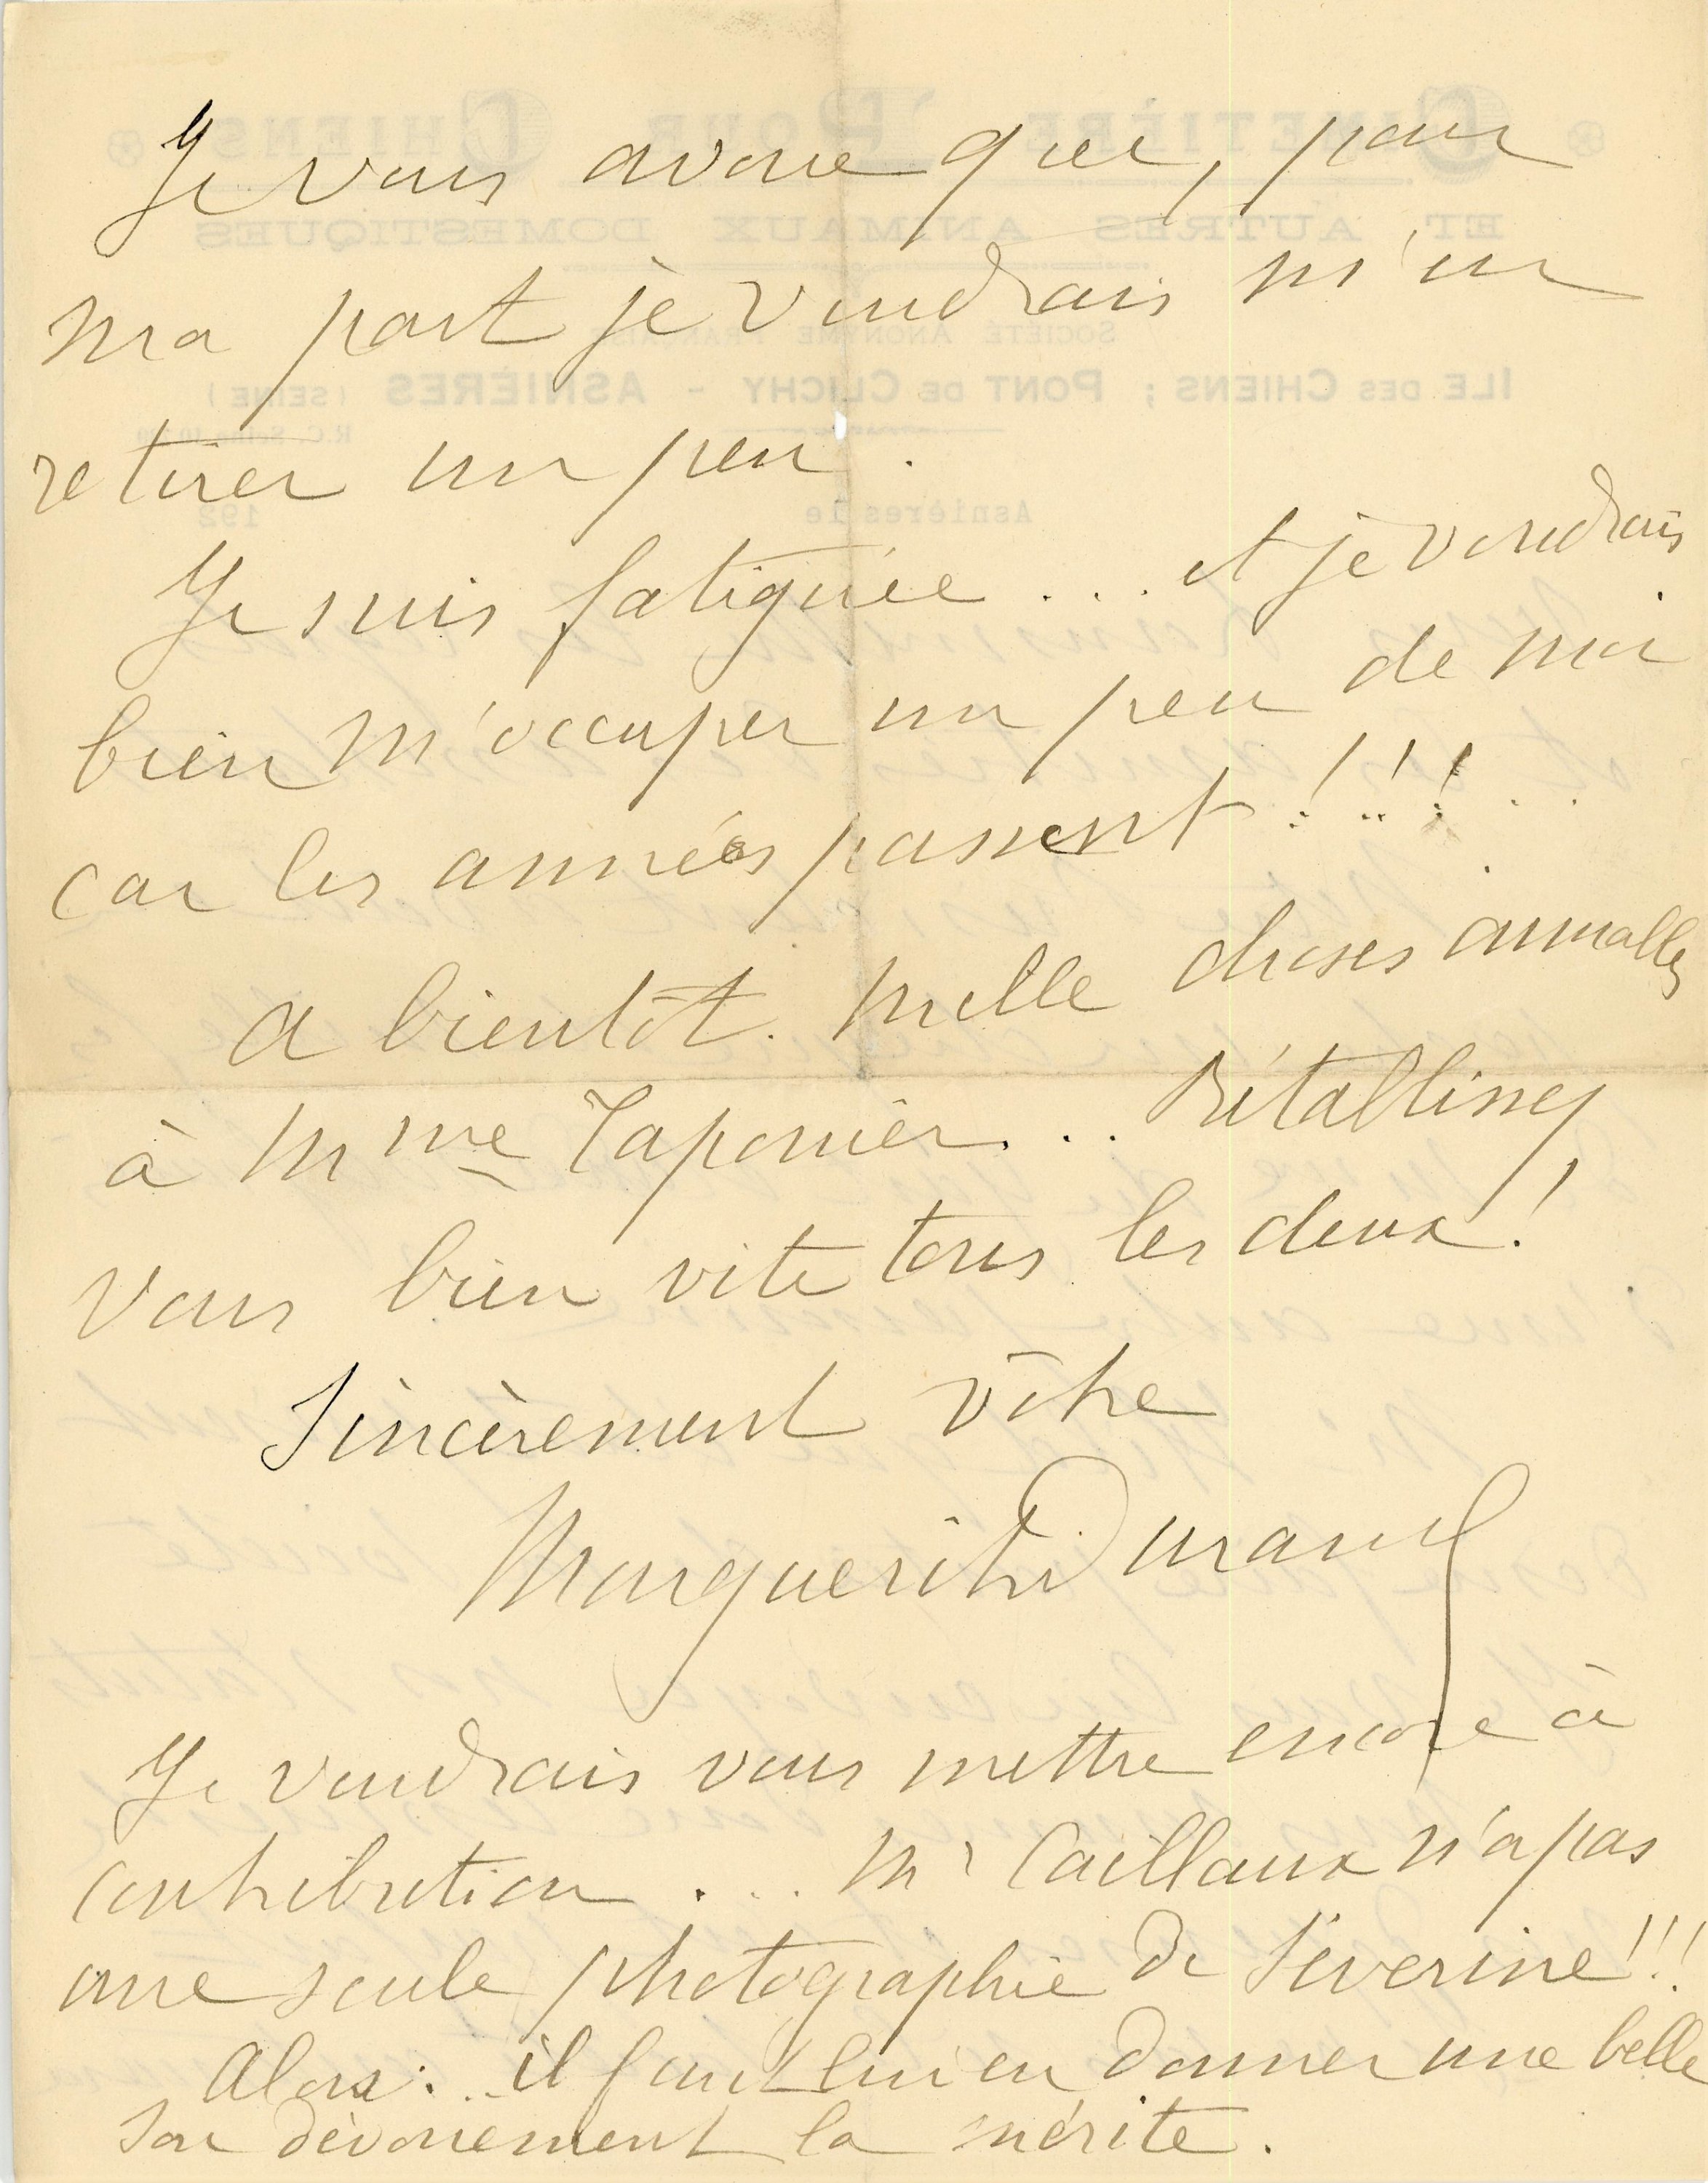 Je vous avoue que, pour
ma part je voudrais m'en
retirer un peu.
Je suis fatiguée ... et je voudrais
bien m'occuper un peu de moi
car les années passent !!! ..
a bientôt. mille choses annuelles
à Mme Taponier... Rétablissez
vous bien vite tous les deux !
Sincèrement vôtre
Marguerite Durand
Je voudrais vous mettre encore à
contribution ... Mr Caillaux n'a pas
une seule photographie de Séverine !!!
Alors : .. il faut lui en donner une belle
son dévouement la mérite.